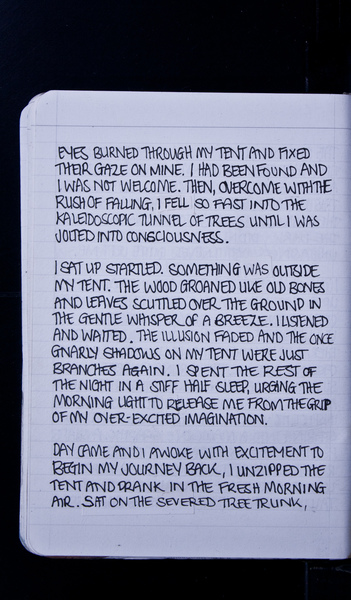 EYES BURNED THROUGH MY TENT AND FIXED
THEIR GAZE ON MINE. I HAD BEEN FOUND AND
I WAS NOT WELCOME. THEN, OVERCOME WITH THE
RUSH OF FALLING, I FELL SO FAST INTO THE
KALEIDOSCOPIC TUNNEL OF TREES UNTIL I WAS
JOLTED INTO CONSCIOUSNESS.
I SAT UP STARTLED. SOMETHING WAS OUTSIDE
MY TENT. THE WOOD GROANED LIKE OLD BONES
AND LEAVES SCUTTLED OVER THE GROUND IN
THE GENTLE WHISPER OF A BREEZE. I LISTENED
AND WAITED. THE ILLUSION FADED AND THE ONCE
GNARLY SHADOWS ON MY TENT WERE JUST
BRANCHES AGAIN. I SPENT THE REST OF
THE NIGHT IN A STIFF HALF SLEEP, URGING THE
MORNING LIGHT TO RELEASE ME FROM THE GRIP
OF MY OVER-EXCITED IMAGINATION.
DAY CAME AND I AWOKE WITH EXCITEMENT TO
BEGIN MY JOURNEY BACK, I UNZIPPED THE
TENT AND DRANK IN THE FRESH MORNING
AIR. SAT ON THE SEVERED TREE TRUNK,